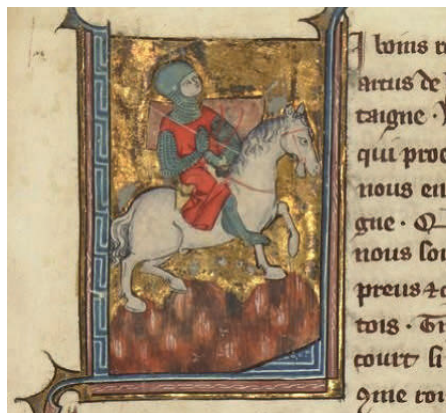 I boins r
artus de
taigne ·
qui proe
nous en
gne · Q
nous soi
preus ⁊ c
tois · Ti
court si
ꝯme roi